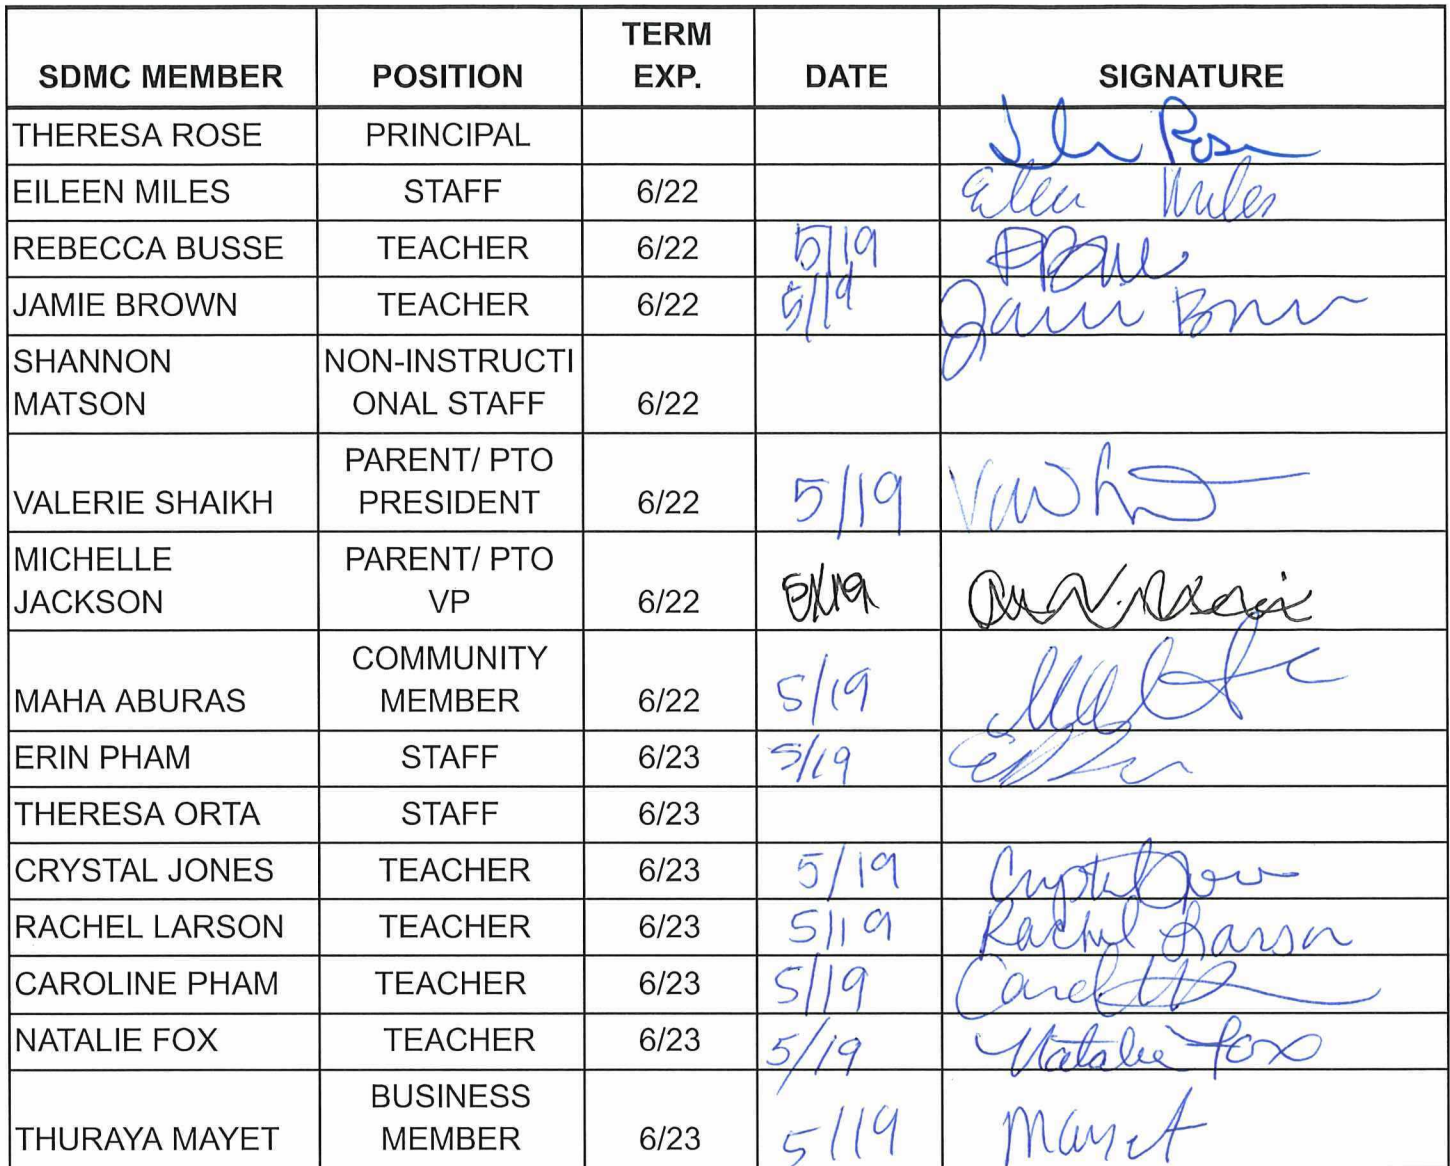 TERM
SDMC MEMBER POSITION EXP. DATE SIGNATURE
THERESA ROSE PRINCIPAL Rose
EILEEN MILES STAFF 6/22 Eileen Miles
REBECCA BUSSE TEACHER 6/22 5/19
JAMIE BROWN TEACHER 6/22 5/19 Jamie Brown
SHANNON NON-INSTRUCTI
MATSON ONAL STAFF 6/22
PARENT/ PTO
VALERIE SHAIKH PRESIDENT 6/22 5/19
MICHELLE PARENT/ PTO
JACKSON VP 6/22 5/19
COMMUNITY
MAHA ABURAS MEMBER 6/22 5/19
ERIN PHAM STAFF 6/23 5/19
THERESA ORTA STAFF 6/23
CRYSTAL JONES TEACHER 6/23 5/19 Crystal Jones
RACHEL LARSON TEACHER 6/23 5/19 Rachel Larson
CAROLINE PHAM TEACHER 6/23 5/19
NATALIE FOX TEACHER 6/23 5/19 Natalie Fox
BUSINESS
THURAYA MAYET MEMBER 6/23 5/19 Mayet